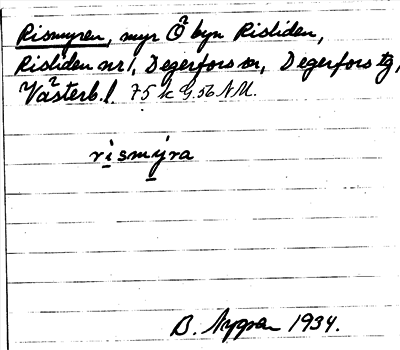 Rismyren, myr Ö byn Risliden,
Risliden nr 1, Degerfors sn, Degerfors tg,
Västerb. l. 75 k G. 56 NM.
rismýra
B. 1934.